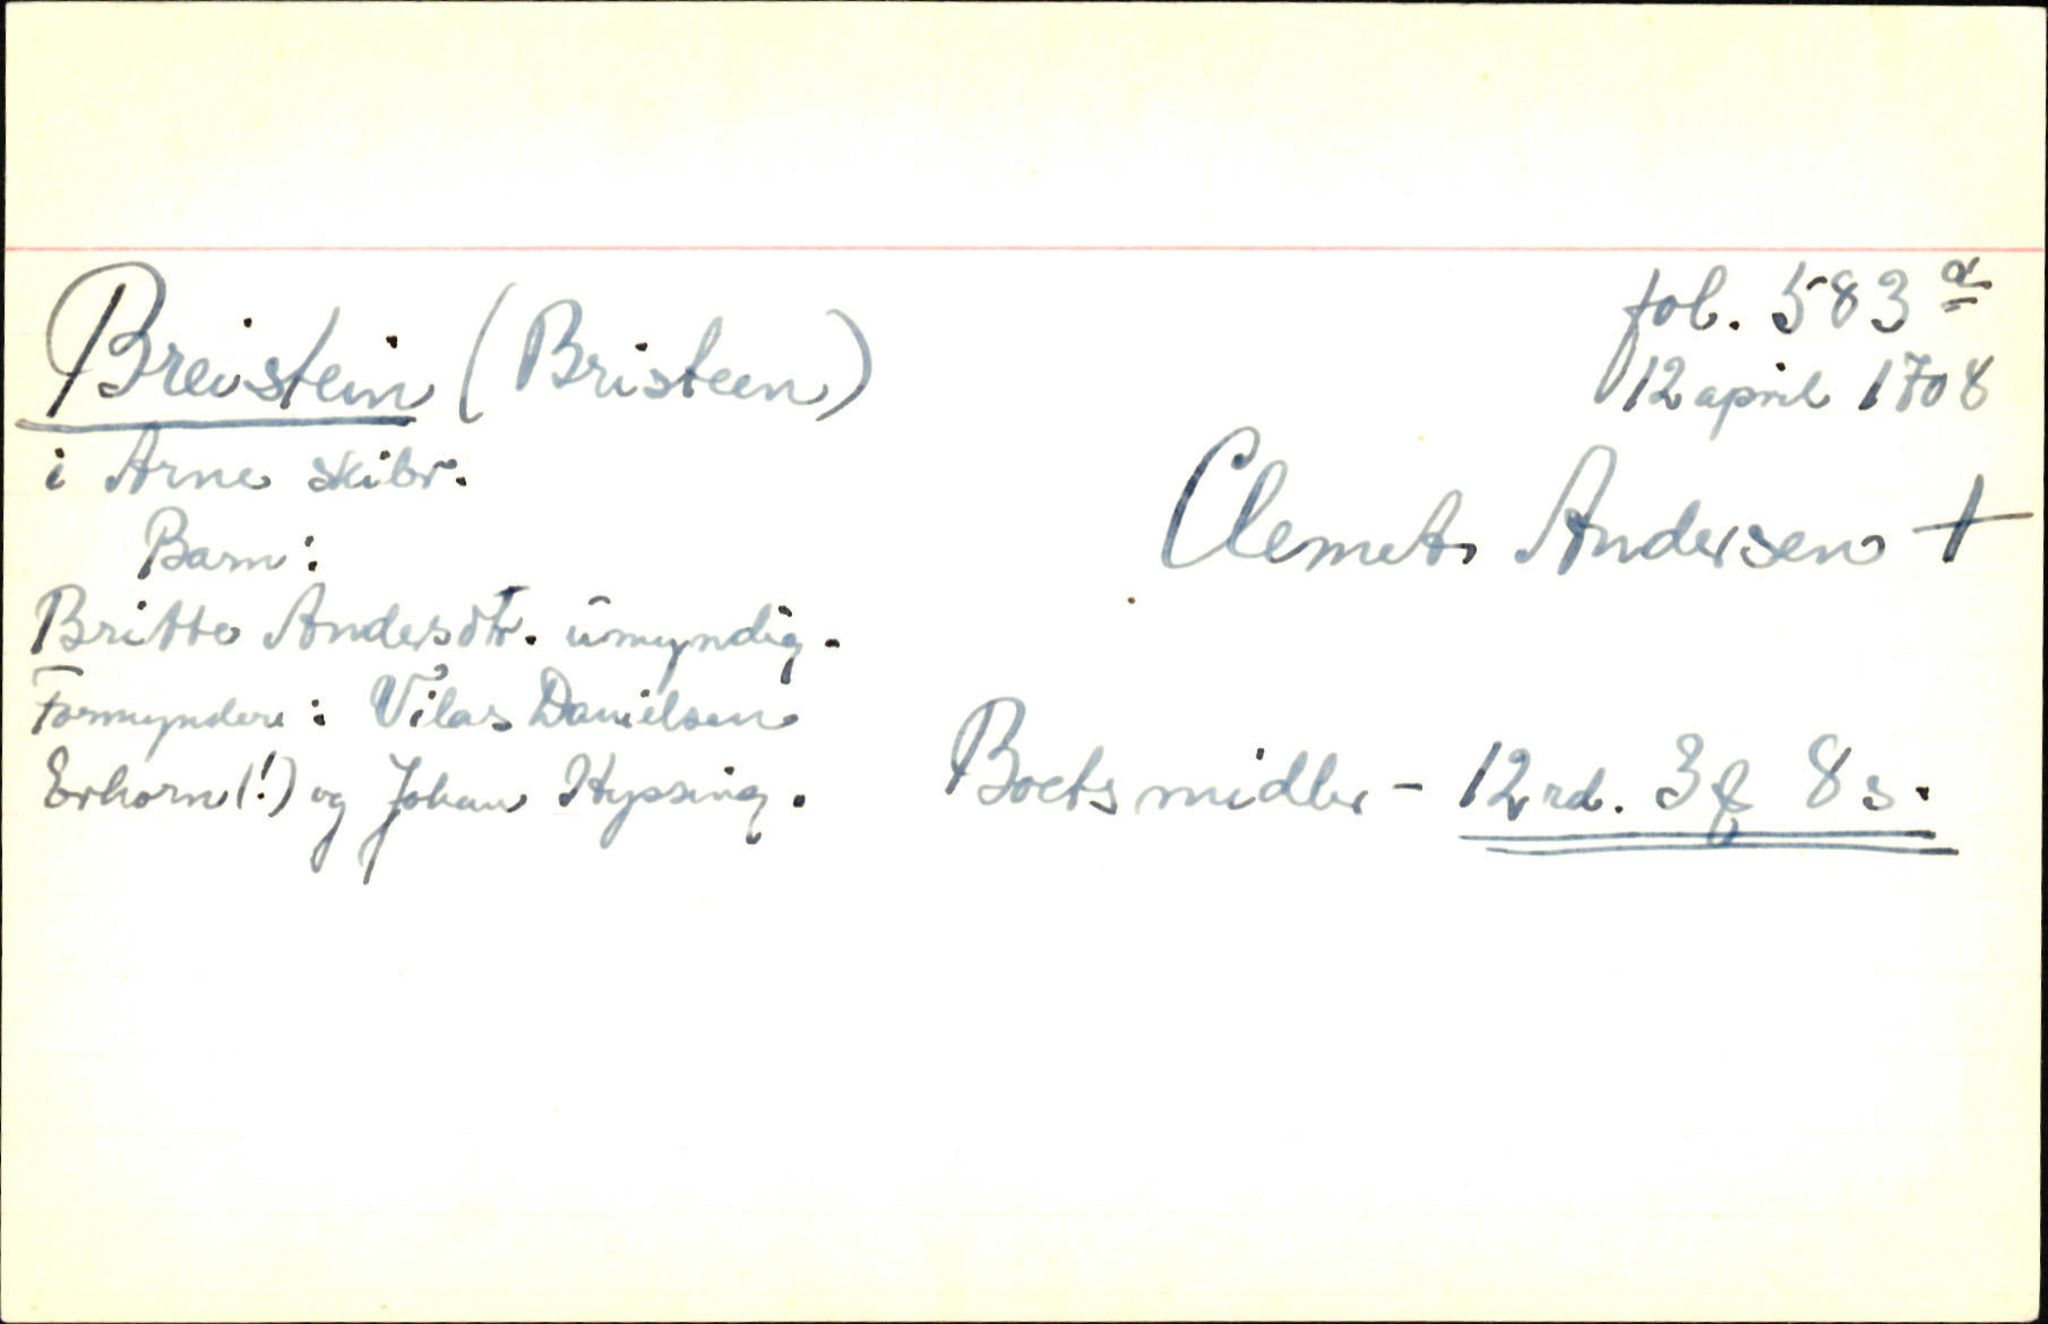 fol. 583 a
Breistein (Bristeen)
12 april 1708
i Arne skibr.
Clemet Andersen +
Barn:
Britte Andersdtr. umyndig.
Formyndere: Vilas Danielsen
Erhorn(!) og Johan Hypsing.
Boets midler - 12 rd. 3 ₰ 8 s.